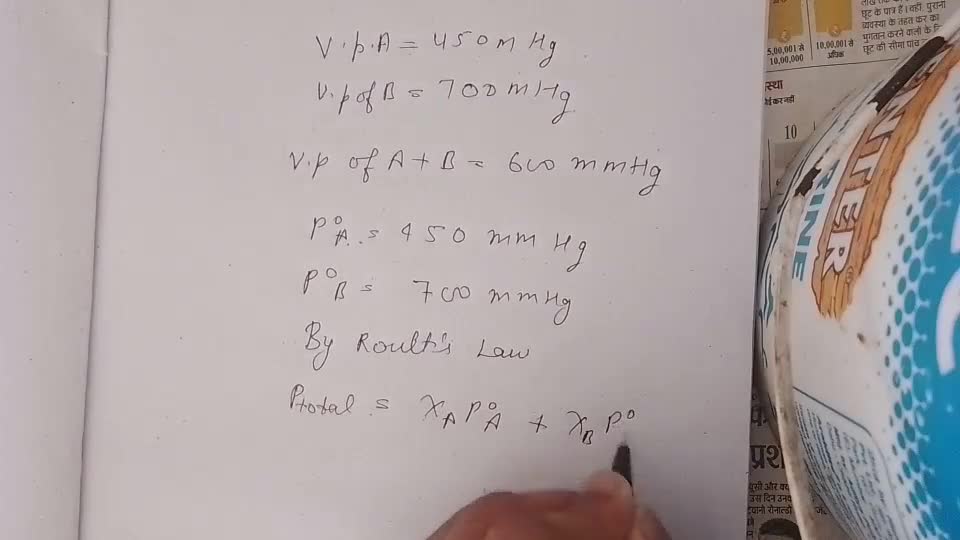 V.p.A = 450m Hg
V.p of B = 700 m Hg
V.p of A + B = 600 mmHg
P°A. = 450 mm Hg
P°B = 700 mmHg
By Roult's Law
Ptotal = XA P°A + XB P°
5,00,001 से
10,00,000
10,00,001 से
अधिक
छूट के पात्र हैं। वहीं, पुरानी
व्यवस्था के तहत कर का
भुगतान करने वालों के
छूट की सीमा पांच
स्था
कर नहीं
10
RINE